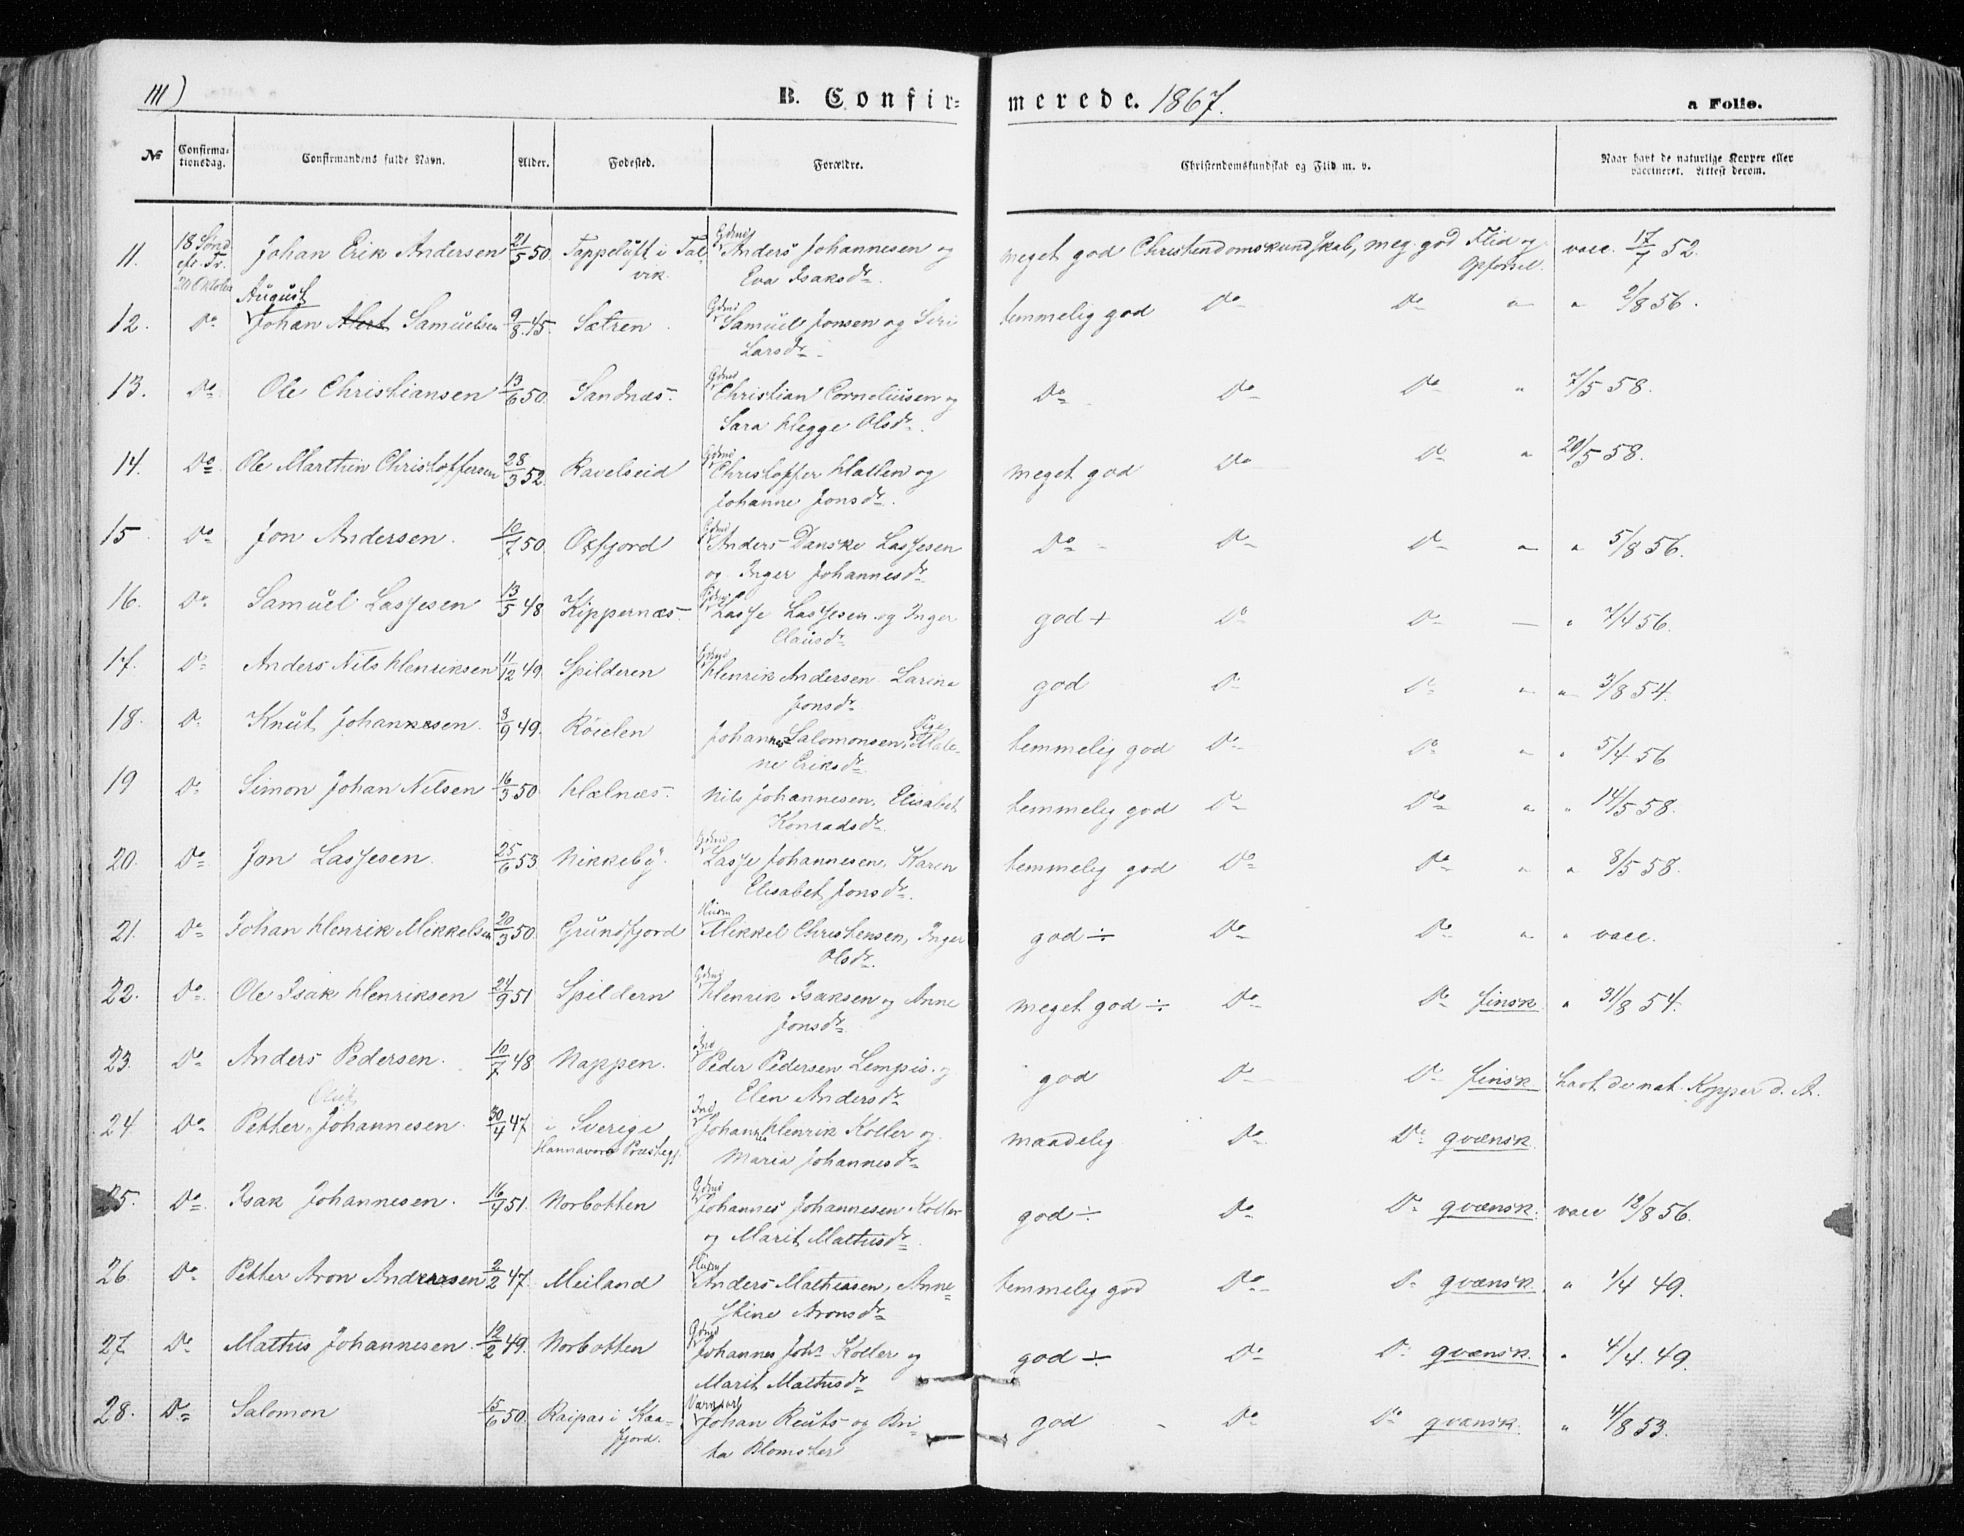 111)
B. Confir-
merede. 1867.
a Folio.
No
Confirma-
tionsdag.
Confirmandens fulde Navn.
Alder.
Fødested.
Forældre.
Christendomskundskab og Flid m. v.
Naar havt de naturlige Kopper eller
vaccineret. Attest derom.
11. 18 Sönd. eft. Tr. 20 Oktober Johan Erik Andersen 21/5 50 Tappeluft i Tal-
vik. Gdmd Anders Johannesen og
Eva Isaksdr. meget god Christendomskundskab, meg. god Flid og
Opførsel. vacc. 17/7 52.
12. Do August
Johan Samuelsen 9/8 45. Sætren Gdmd Samuel Jonsen og Siri
Larsdr. temmelig god Do Do " " 2/8 56.
13. Do Ole Christiansen 13/6 50. Sandnæs Gdmd Christian Corneliusen og
Sara Hegge Olsdr. Do Do Do " 7/5 58.
14. Do Ole Marthin Christoffersen 28/3 52. Ravelseid Gdmd Christoffer Hallen og
Johanne Jonsdr. meget god Do Do " 20/5 58.
15 Do Jon Andersen. 10/7 50. Oxfjord Gdmd Anders Danske Lassesen
og Inger Johannesdr. Do Do Do " " 5/8 56.
16. Do Samuel Lassesen 13/5 48 Kippernæs Gdmd Lasse Lassesen og Inger
Clausdr. god + Do Do — " 7/4 56.
17. Do Anders Nils Henriksen 11/12 49. Spilderen Gdmd Henrik Andersen Larine
Jonsdr. god Do Do " " 3/8 54.
18. Do Knut Johannesen. 8/9 49. Röielen Johannes Salomonsen, Pige Male-
ne Eriksdr. temmelig god Do Do " " 5/4 56
19 Do Simon Johan Nilsen 16/3 50. Hælnæs. Nils Johannesen, Elisabet
Konradsdr. temmelig god Do Do " " 14/5 58.
20. Do Jon Lassesen 25/6 53. Nikkeby. Gdmd Lasse Johannesen, Karen
Elisabet Jonsdr. temmelig god Do Do " " 8/5 58.
21. Do Johan Henrik Mikkelsen 20/3 50. Grundfjord Husm Mikkel Christensen, Inger
Olsdr. god ÷ Do Do " " vacc.
22. Do Ole Isak Henriksen 24/9 51 Spildern Gdmd Henrik Isaksen og Anne
Jonsdr. meget god ÷ Do Do finsk " 31/8 54.
23. Do Anders Pedersen. 10/7 48 Nappen. Ind Peder Pedersen Lempis. og
Elen Andersdr. god Do Do finsk havt de nat. Kopper d. A.
24 Do Petter Johannesen. 30/4 47 i Sverige
Præstegj. Ind Johannes Henrik Koller og
Maria Johannesdr. maadelig Do Do qvænsk
25. Do Isak Johannesen. 16/7 51. Norbotten Gdmd Johannes Johannesen Koller
og Marit Mathisdr. god ÷ Do Do qvænsk. vacc 12/8 56.
26. Do Petter Aron Andersen 2/2 47. Meiland Husm Anders Mathiesen, Anne-
stine Aronsdr. temmelig god Do Do qvænsk. " 1/4 49.
27 Do Mathis Johannesen. 12/2 49. Norbotten Gdmd Johannes Johs Koller og
Marit Mathisdr. god ÷ Do Do qvænsk. " 4/4 49.
28. Do Salomon 15/6 50. Raipas i Kaa-
fjord. Johan Reuts og Bri-
ta Blomster god Do Do qvænsk. " 4/8 53.